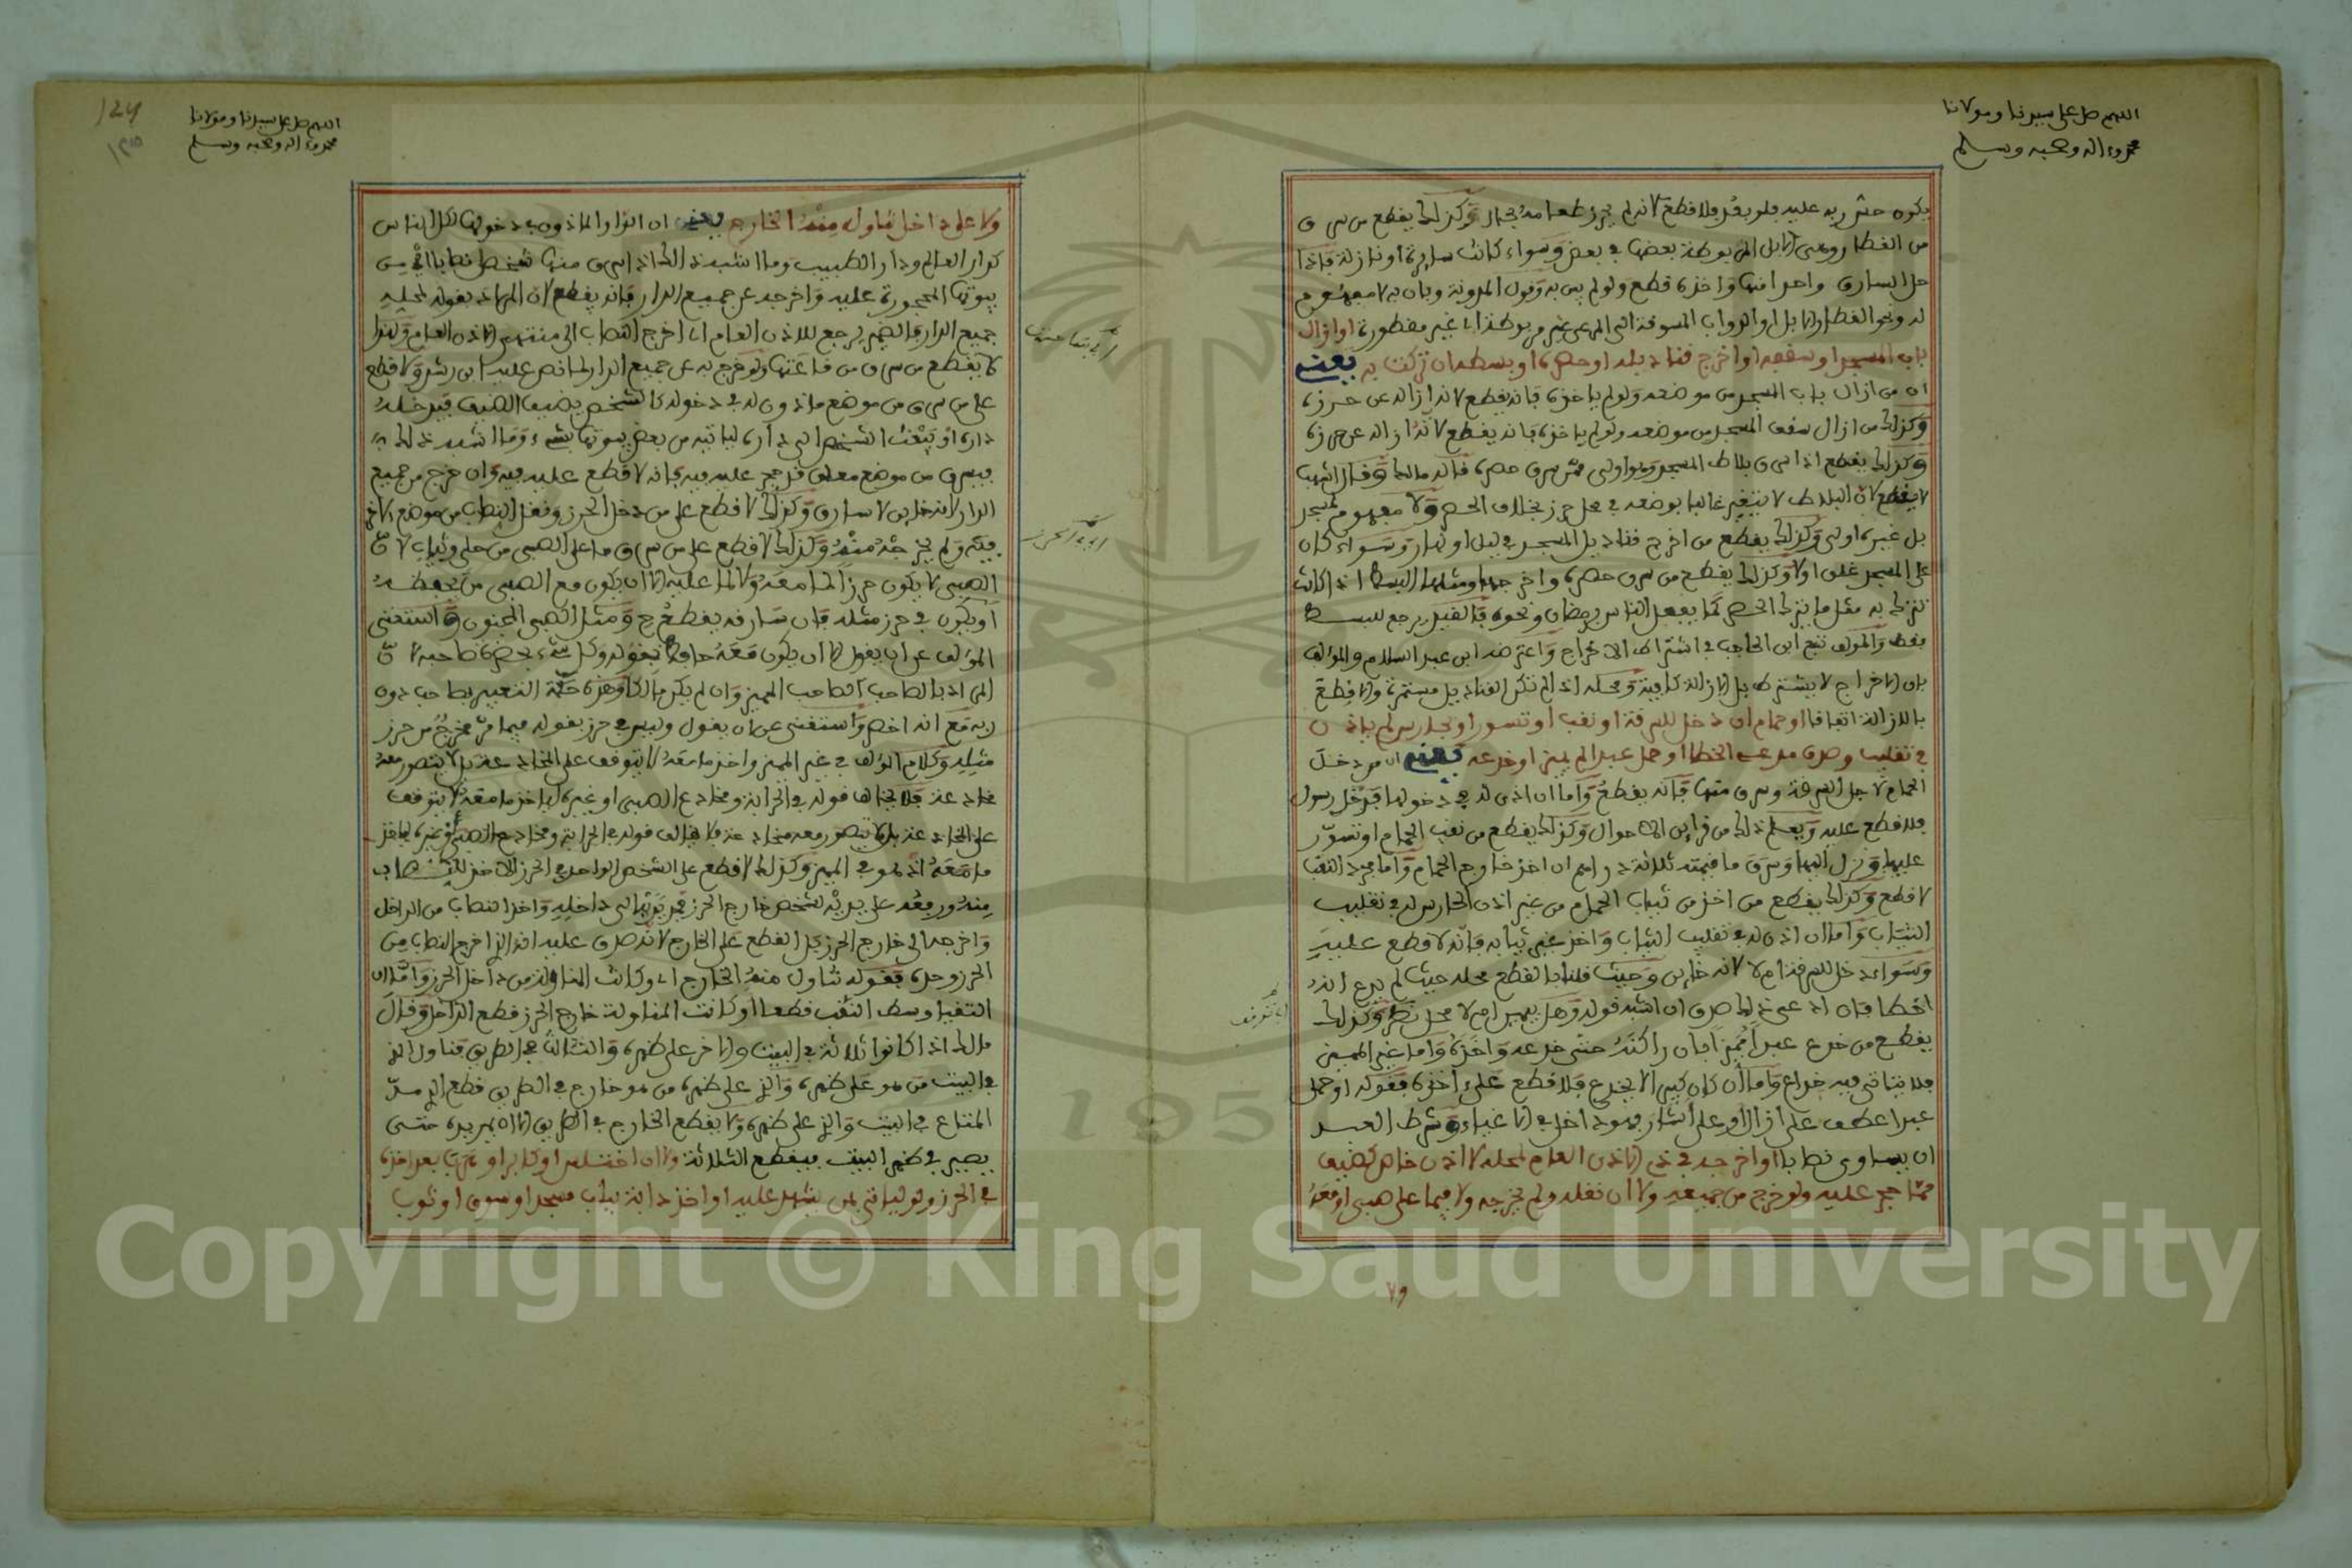 اللهم صل على سيدنا ومولانا
محمد وءاله وصحبه وسلم
يكون حتى ربه عليه فلو بقر فلا قطع لانه لم يحرز طعامه بحال وكذلك يقطع من سرق
من القطار وهي الابل المربوطة بعضها في بعض وسواء كانت سايرة او نازلة فاذا
حل السارق واحدا منها واخذه قطع ولو لم يبن به وقول المدونة وبان به لا مفهوم
له ونحو القطار الابل او الدواب المسوقة الى المرعى غير مربوطة اي غير مقطورة او ازال
باب المسجد او سقفه او اخرج قناديله او حصره او بسطه ان تركت به يعني
ان من ازال باب المسجد من موضعه ولو لم ياخذه فانه يقطع لانه ازاله عن حرزه
وكذلك من ازال سقف المسجد من موضعه ولو لم ياخذه فانه يقطع لانه ازاله عن حرزه
وكذلك يقطع اذا سرق بلاط المسجد وهو اولى ممن سرق حصره قاله مالك وقال اشهب
لا يقطع لان البلاط لا يتغير غالبا بوضعه في محل حرز بخلاف الحصر ولا مفهوم لمسجد
بل غيره اولى وكذلك يقطع من اخرج قناديل المسجد في ليل او نهار وسواء كان
على المسجد غلق او لا وكذلك يقطع من سرق حصره واخرجها ومثلها البسط اذا كانت
تترك به مثل ما يترك الحصر كما يفعل الناس برمضان ونحوه فالقيد يرجع للبسط
فقط والمولف تبع ابن الحاجب في اشتراط الاخراج واعترضه ابن عبد السلام والمولف
بان الاخراج لا يشترط بل الازالة كافية ومحله اذا لم تكن القناديل مستمرة والا قطع
بالازالة اتفاقا او حمام ان دخل للسرقة او نقب او تسور او بحارس لم ياذن
في تقليب وصدق مدعي الخطا او حمل عبدا لم يميز او خدعه يعني ان من دخل
الحمام لاجل السرقة وسرق منها فانه يقطع واما ان اذن له في دخولها فدخل وسرق
فلا قطع عليه ويعلم ذلك من قراين الاحوال وكذلك يقطع من نقب الحمام او تسور
عليها ونزل اليها وسرق ما قيمته ثلاثة دراهم ان اخذ خارج الحمام واما مجرد النقب
لا قطع وكذلك يقطع من اخذ من ثياب الحمام من غير اذن الحارس له في تقليب
الثياب واما ان اذن له في تقليب الثياب واخذ غير ثيابه فانه لا قطع عليه
وسواء دخل للسرقة ام لا لانه خاين وحيث قلنا بالقطع محله حيث لم يدع انه
اخطا فان ادعى ذلك صدق ان اشبه قوله وهل يمين ام لا محل نظر وكذلك
يقطع من خدع عبدا مميزا بان راكنه حتى خدعه واخذه واما غير المميز
فلا يتاتى فيه خداع واما ان كان كبيرا لا يخدع فلا قطع على اخذه فقوله او حمل
عبدا عطف على ازال او على اشار فهو داخل في الاغياء وشرط العبد
ان يساوي نصابا او اخرجه في ذي الاذن العام لمحله لا اذن خاص كضيف
مما حجر عليه ولو خرج من جميعه ولا ان نقله ولم يخرجه ولا فيما على صبي او معه
اللهم صل على سيدنا ومولانا
محمد وءاله وصحبه وسلم
ولا على داخل تناول منه الخارج يعني ان الدار الماذون في دخولها لكل الناس
كدار العالم ودار الطبيب وما اشبه ذلك اذا سرق منها شخص نصابا من
بيوتها المحجورة عليه واخرجه عن جميع الدار فانه يقطع لان المراد بقوله لمحله
جميع الدار فالضمير يرجع للاذن العام اي اخرج النصاب الى منتهى الاذن العام
لا يقطع من سرق من قاعتها ولو خرج به عن جميع الدار لما نص عليه ابن رشد ولا قطع
على من سرق من موضع ماذون له في دخوله كالشخص يضيف الضيف فيدخله
داره او يبعث الشخص الى داره لياتيه من بعض بيوتها بشيء وما اشبه ذلك
فيسرق من موضع مغلق قد حجر عليه فيه فانه لا قطع عليه فيه وان خرج من جميع
الدار لانه خاين لا سارق وكذلك لا قطع على من دخل الحرز ونقل النصاب من موضع لاخر
فيه ولم يخرجه منه وكذلك لا قطع على من سرق ما على الصبي من حلي وثياب لان
الصبي لا يكون حرزا لما معه ولا لما عليه الا ان يكون مع الصبي من يحفظه
او يكون في حرز مثله فان سارقه يقطع ح ومثل الصبي المجنون واستغنى
المولف عن ان يقول الا ان يكون معه حافظ بقوله وكل شيء بحضرة صاحبه لان
المراد بالصاحب الصاحب المميز وان لم يكن مالكا وهذه حكمة التعبير بصاحب دون
ربه مع انه اخصر واستغنى عن ان يقول وليس في حرز بقوله فيما مر مخرج من حرز
مثله وكلام المولف في غير المميز واخذ ما معه لا يتوقف على المخادعة بل لا يتصور معه
مخادعة فلا يخالف قوله في الحرابة ومخادع الصبي او غيره لياخذ ما معه لا يتوقف
على المخادعة بل لا يتصور معه مخادعة فلا يخالف قوله في الحرابة ومخادع الصبي او غيره لياخذ
ما معه اذ هو في المميز وكذلك لا قطع على الشخص الواحد في الحرز الاخذ للنصاب
منه ورفعه على يديه لشخص خارج الحرز فمد يده الى داخله واخذ النصاب من الداخل
واخرجه الى خارج الحرز بل القطع على الخارج لانه صدق عليه انه الذي اخرج النصاب من
الحرز وحده فقوله تناول منه الخارج اي وكانت المناولة من داخل الحرز واما ان
التقيا وسط النقب قطعا او كانت المناولة خارج الحرز قطع الداخل وقال
مالك اذا كانوا ثلاثة في البيت والاخر على ظهره والثالث في الطريق فناول الذي
في البيت من هو على ظهره والذي على ظهره من هو خارج في الطريق قطع الذي مد
المتاع في البيت والذي على ظهره ولا يقطع الخارج في الطريق الا ان يمد يده حتى
يصير في ظهر البيت فيقطع الثلاثة ولا ان اختلس او كابر او هرب بعد اخذه
في الحرز ولو لياتي بمن يشهد عليه او اخذ دابة بباب مسجد او سوق او ثوب
Copyright © King Saud University
1957